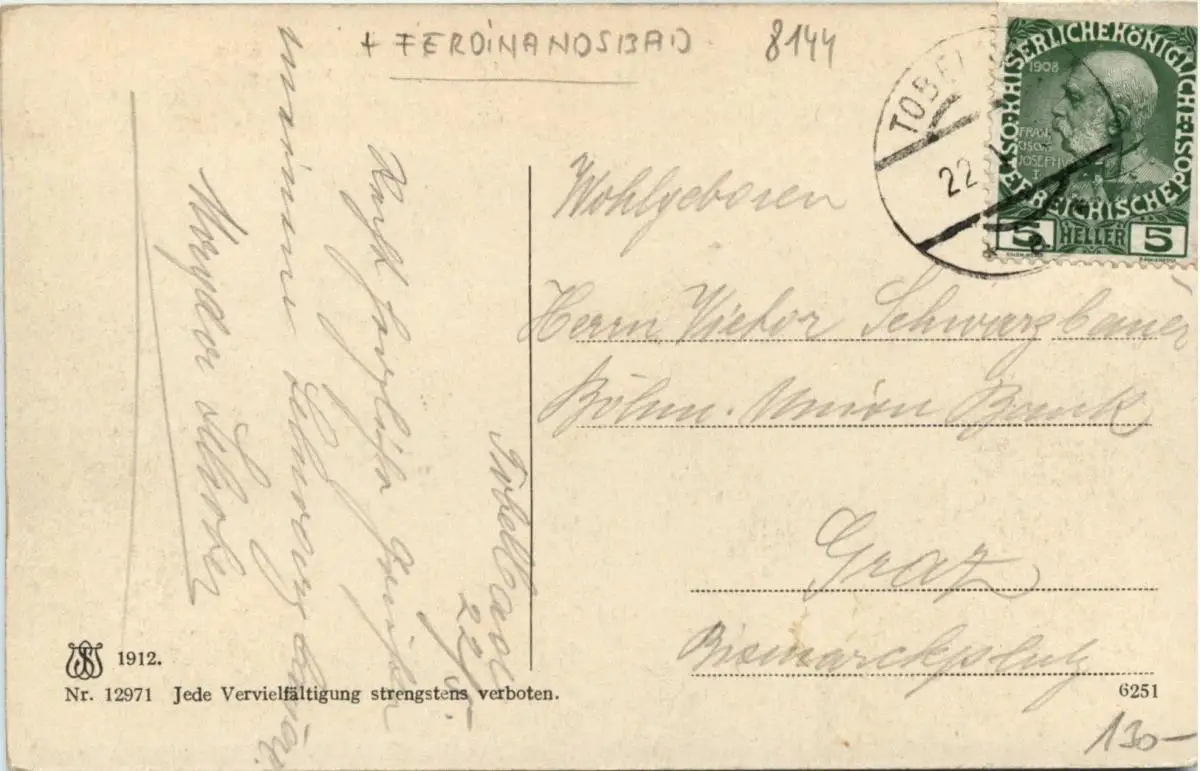 + FERDINANDSBAD
8144
TOBEL
22
KAISERLICHE KÖNIGLICHE ÖSTERREICHISCHE POST
1908
FRANCISCUS JOSEPHUS I
5 HELLER 5
Wohlgeboren
Herrn Viktor Schwarzbauer
Böhm. Union Bank
Graz
Bismarckplatz
Tobelbad
22/5.
herzlichste Grüße
Schwarzbauer
1912.
Nr. 12971 Jede Vervielfältigung strengstens verboten.
6251
130-